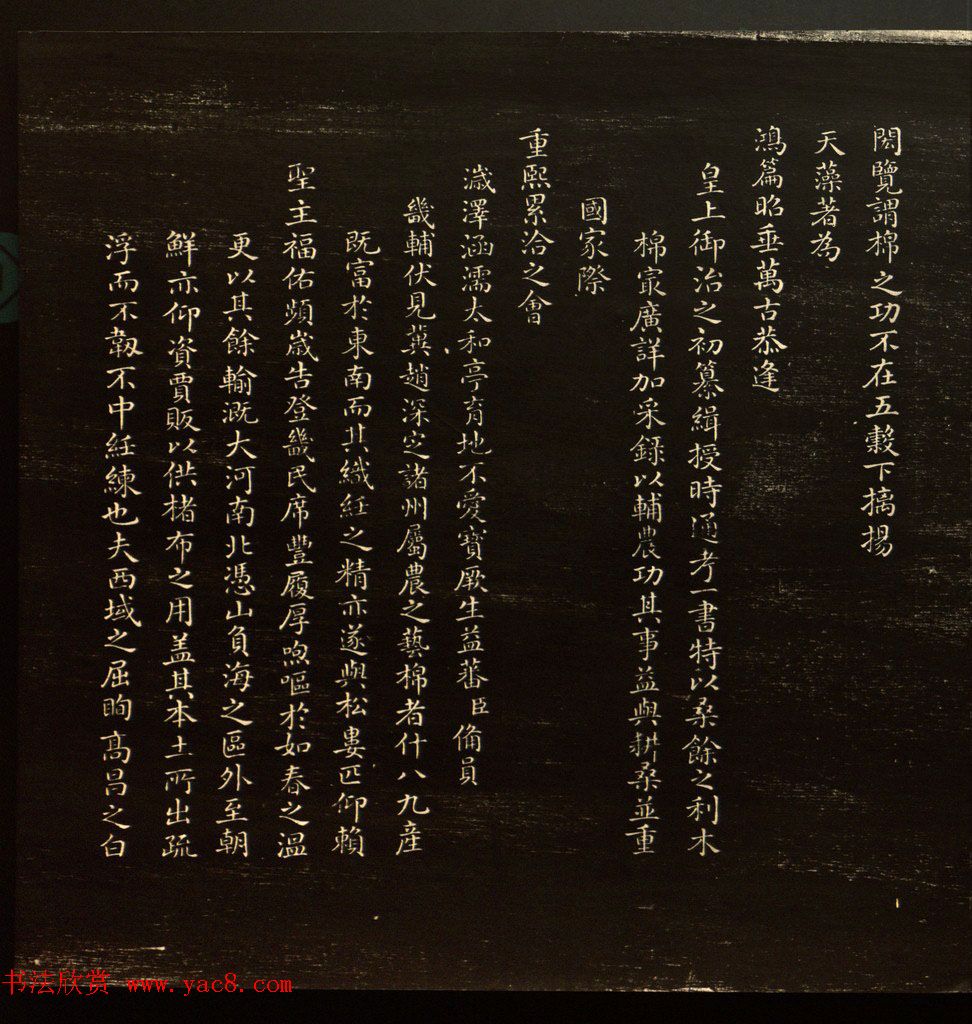 閎覽謂棉之功不在五穀下摛揚
天藻著為
鴻篇昭垂萬古恭逢
皇上御治之初纂緝授時通考一書特以桑餘之利木
棉㝡廣詳加采錄以輔農功其事益與耕桑並重
國家際
重熙累洽之會
濊澤涵濡太和亭育地不愛寶厥生益蕃臣俻員
畿輔伏見冀趙深定諸州屬農之藝棉者什八九産
既富於東南而其織紝之精亦遂與松婁匹仰賴
聖主福佑頻歲告登畿民席豐履厚呴嘔於如春之溫
更以其餘輸溉大河南北憑山負海之區外至朝
鮮亦仰資賈販以供楮布之用盖其本土所出疏
浮而不韌不中紝練也夫西域之屈眴高昌之白
书法欣赏 www.yac8.com